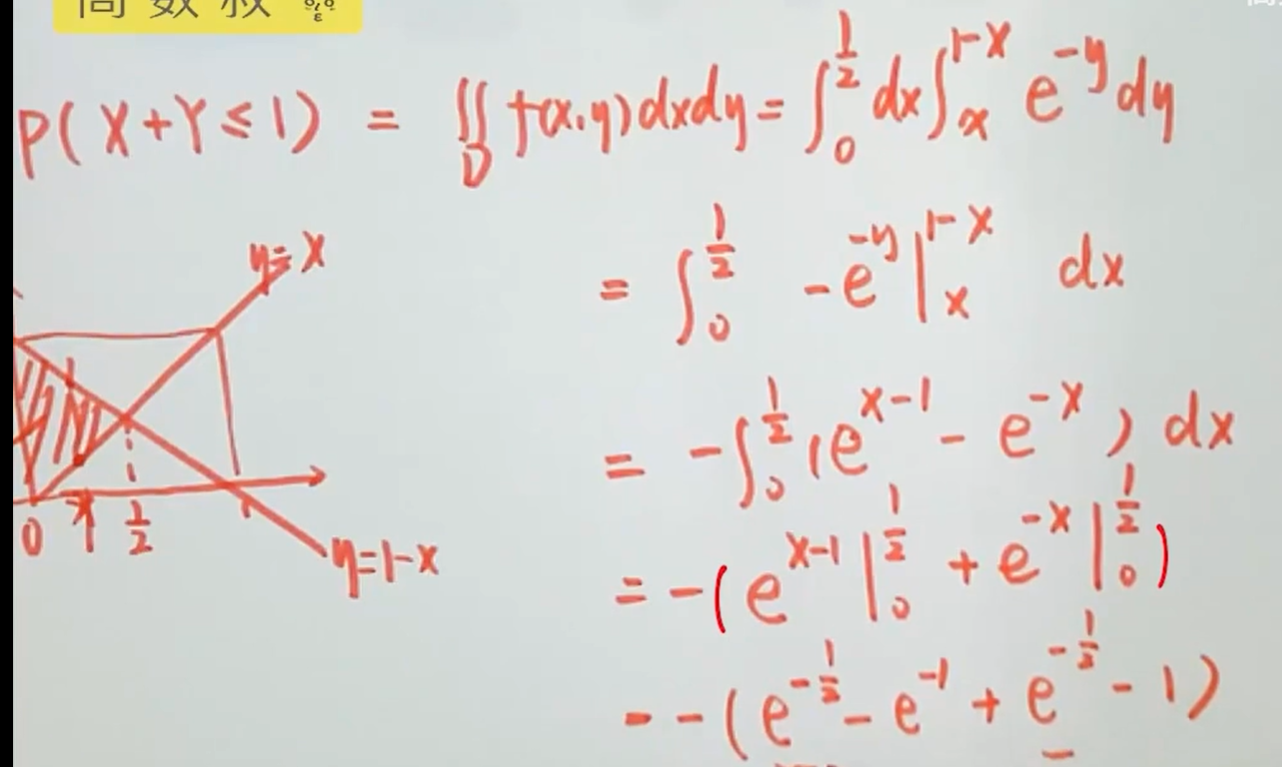 高数叔
P(X+Y≤1) = ∬_D f(x,y)dxdy = ∫_0^{1/2} dx ∫_x^{1-x} e^{-y} dy
= ∫_0^{1/2} -e^{-y} |_x^{1-x} dx
= -∫_0^{1/2} (e^{x-1} - e^{-x}) dx
= -(e^{x-1} |_0^{1/2} + e^{-x} |_0^{1/2})
= -(e^{-1/2} - e^{-1} + e^{-1/2} - 1)
y=x
0 1/2
y=1-x